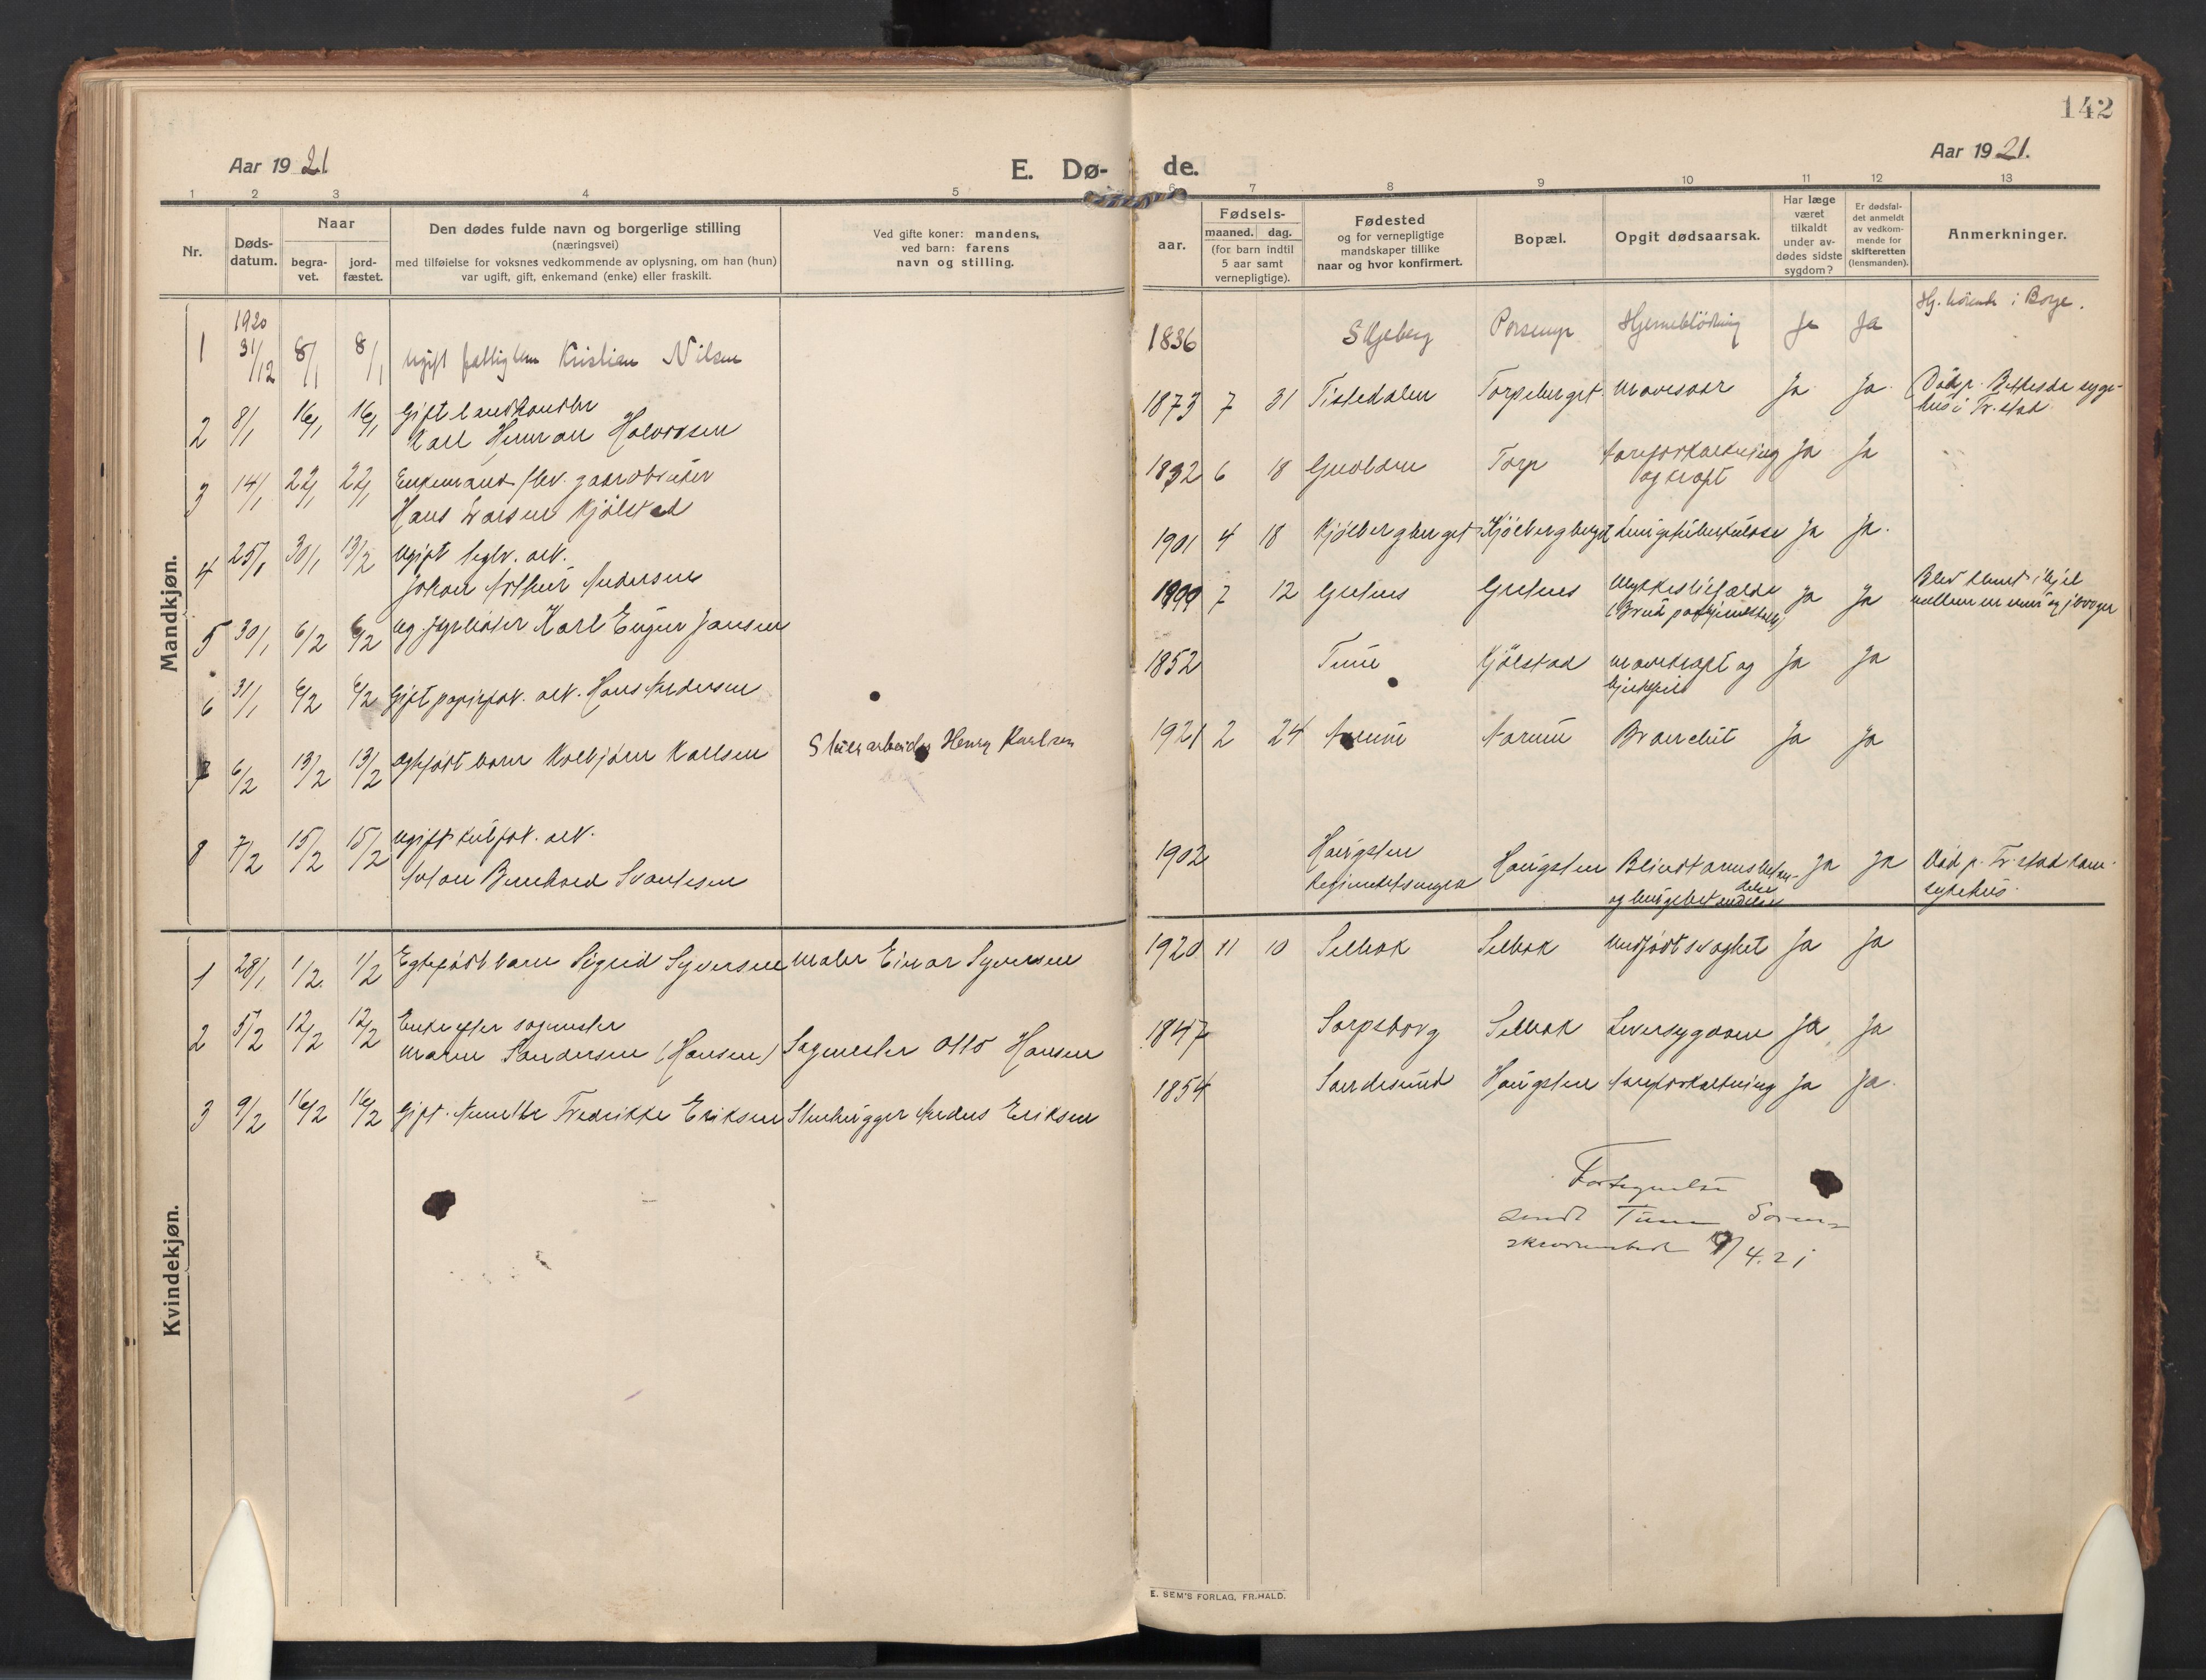 142
Aar 1921
E. Dø-
de.
Aar 1921.
1 2 3 4 5 6 7 8 9 10 11 12 13
Nr.
Døds-
datum.
Naar
begra-
vet.
jord-
fæstet.
Den dødes fulde navn og borgerlige stilling
(næringsvei)
med tilføielse for voksnes vedkommende av oplysning, om han (hun)
var ugift, gift, enkemand (enke) eller fraskilt.
Ved gifte koner: mandens,
ved barn: farens
navn og stilling.
aar.
Fødsels-
maaned. dag.
(for barn indtil
5 aar samt
vernepligtige).
Fødested
og for vernepligtige
mandskaper tillike
naar og hvor konfirmert.
Bopæl.
Opgit dødsaarsak.
Har læge
været
tilkaldt
under av-
dødes sidste
sygdom?
Er dødsfal-
det anmeldt
av vedkom-
mende for
skifteretten
(lensmanden).
Anmerkninger.
Mandkjøn.
1920
1 31/12 8/1 8/1 Ugift fattiglem Kristian Nilsen 1836 Skjeberg Hjerneblödning Ja Ja Hj. hörende i Borge.
2 8/1 16/1 16/1 Gift landhandler
Karl Herman Halvorsen 1873 7 31 Tistedalen Torpeberget Mavesaar Ja Ja Död p. Bethesda syge-
hus i Fr.stad.
3 14/1 22/1 22/1 Enkemand fhv. gaardbruker
Hans Larsen Kjölstad 1832 6 18 Torp Aareforkalkning Ja Ja
og kræft
4 25/1 30/1 13/2 Ugift teglv. arb.
Johan Arthur Andersen 1901 4 18 Kjölbergberget Kjölbergberget Lungetuberkulose Ja Ja.
5 30/1 6/2 6/2 Ug fyrböter Karl Eugen Jansen 1899 7 12 Greåker Ulykkestilfælde Ja Ja
6 31/1 6/2 6/2 Gift papirfab. arb. Hans Andersen 1852 Tune Kjölstad Mavekræft og Ja Ja
hjertefeil
7 6/2 13/2 13/2 Egtefødt barn Kolbjörn Karlsen Sliperarbeider Henry Karlsen 1921 2 24 Aarum Aarum Bronchit Ja Ja
8 7/2 15/2 15/2 Ugift kulfab. arb.
Anton Bernhard Svantesen 1902 Haugsten Haugsten Blindtarmsbetæn- Ja Ja Död p. Fr.stad kom.
delse
sykehus.
Kvindekjøn.
1 28/1 1/2. 1/2 Egtefødt barn Sigrid Syversen Maler Einar Syversen 1920 11 10 Selbak Selbak Medfødt svaghet Ja Ja
2 5/2 12/2 12/2 Enke efter sagmester
Maren Sandersen (Hansen) Sagmester Otto Hansen 1847 Sarpsborg Selbak Leversygdom Ja Ja
3 9/2 16/2 16/2 Gift. Anne Fredrikke Eriksen Stenhugger Anders Eriksen 1854 Sandesund Haugsten Aareforkalkning Ja Ja.
Fortegnelse
sendt Tune Soren-
skriverembede /4.21
E. SEM'S FORLAG, FR.HALD.